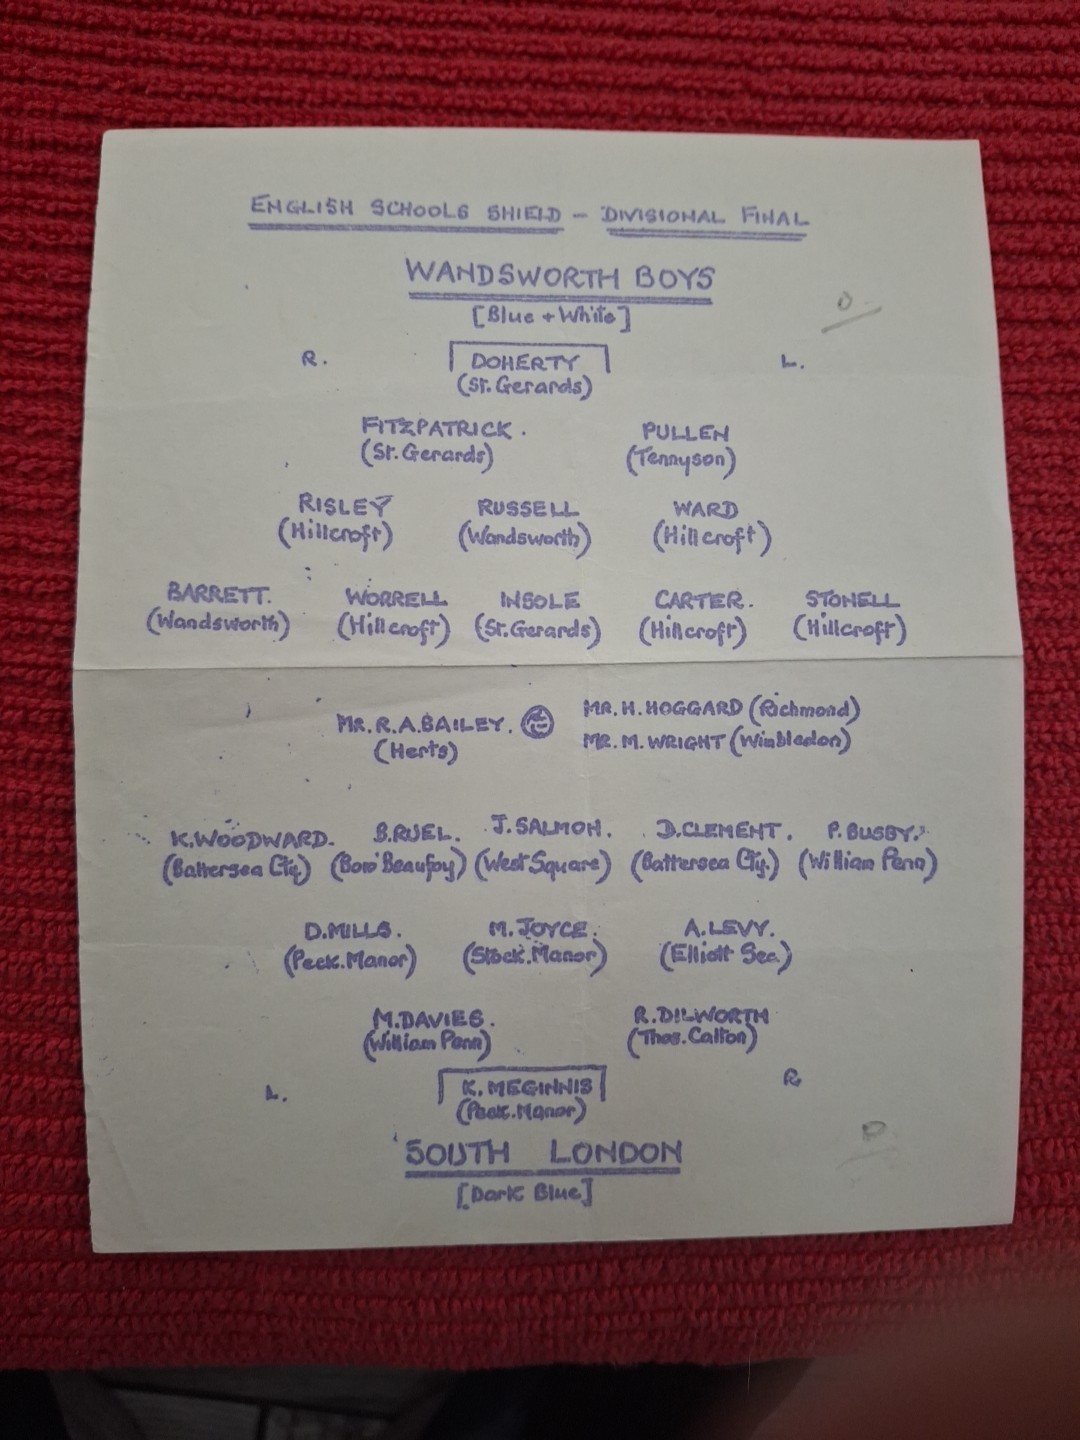 ENGLISH SCHOOLS SHIELD - DIVISIONAL FINAL
WANDSWORTH BOYS
[Blue + White]
O
R. DOHERTY L.
(St. Gerards)
FITZPATRICK. PULLEN
(St. Gerards) (Tennyson)
RISLEY RUSSELL WARD
(Hillcroft) (Wandsworth) (Hillcroft)
BARRETT. WORRELL INSOLE CARTER. STONELL
(Wandsworth) (Hillcroft) (St. Gerards) (Hillcroft) (Hillcroft)
MR. H. HOGGARD (Richmond)
MR. R.A. BAILEY.
MR. M. WRIGHT (Wimbledon)
(Herts)
K. WOODWARD. B. RUEL. J. SALMON. D. CLEMENT. P. BUSBY.
(Battersea Cty.) (Bow' Beaufoy) (West Square) (Battersea Cty.) (William Penn)
D. MILLS. M. JOYCE. A. LEVY.
(Peck. Manor) (Stock. Manor) (Elliott Sec.)
M. DAVIES. R. DILWORTH
(William Penn) (Thos. Calton)
L. K. MEGINNIS R
(Peck. Manor)
SOUTH LONDON
[Dark Blue]